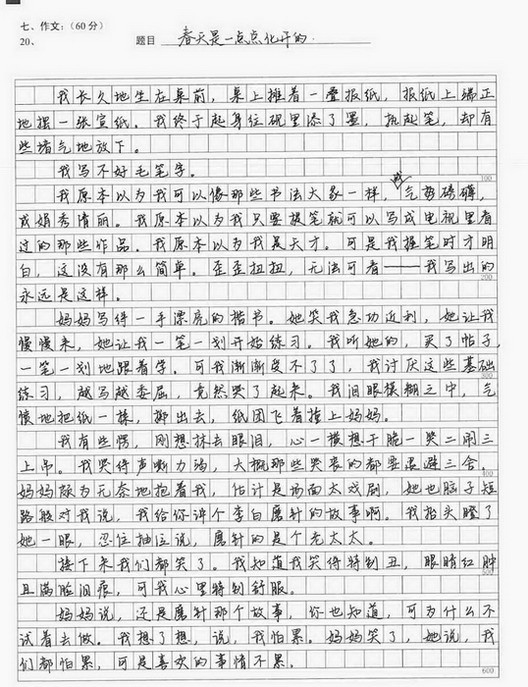 七、作文：（60分）
20、 题目 春天是一点点化开的.
我长久地坐在桌前，桌上摊着一叠报纸，报纸上端正
地摆一张宣纸。我终于起身往砚里添了墨，执起笔，却有
些堵气地放下。
我写不好毛笔字。
100
我原本以为我可以像那些书法大家一样，或气势磅礴，
或娟秀清丽。我原本以为我只要提笔就可以写成电视里看
过的那些作品。我原本以为我是天才。可是我提笔时才明
白，这没有那么简单。歪歪扭扭，无法可看——我写出的
200
永远是这样。
妈妈写得一手漂亮的楷书。她笑我急功近利，她让我
慢慢来，她让我一笔一划开始练习。我听她的，买了帖子，
一笔一划地跟着学。可我渐渐受不了了，我讨厌这些基础
练习，越写越委屈，竟然哭了起来。我泪眼模糊之中，气
愤地把纸一揉，掷出去，纸团飞着撞上妈妈。
我有些愣，刚想抹去眼泪，心一横想干脆一哭二闹三
上吊。我哭得声嘶力竭，大概那些哭丧的都要退避三舍。
400
妈妈颇为无奈地抱着我，估计是场面太戏剧，她也脑子短
路般对我说，我给你讲个李白磨针的故事啊。我抬头瞪了
她一眼，忍住抽泣说，磨针的是个老太太。
接下来我们都笑了。我知道我哭得特别丑，眼睛红肿
且满脸泪痕，可我心里特别舒服。
妈妈说，还是磨针那个故事，你也知道，可为什么不
试着去做。我想了想，说，我怕累。妈妈笑了，她说，我
们都怕累，可是喜欢的事情不累。
600